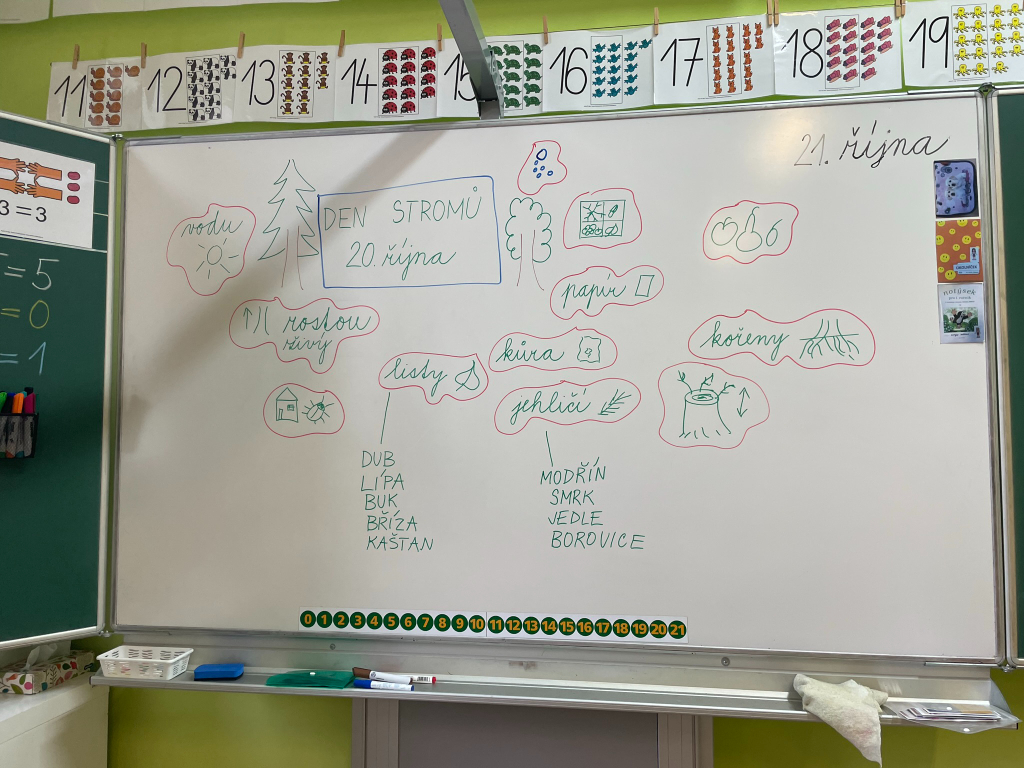 11 12 13 14 15 16 17 18 19
21. října
DEN STROMŮ
20. října
vodu
papír
rostou
živý
kůra
kořeny
listy
jehličí
DUB
LÍPA
BUK
BŘÍZA
KAŠTAN
MODŘÍN
SMRK
JEDLE
BOROVICE
3 = 3
= 5
= 0
= 1
notýsek
0 1 2 3 4 5 6 7 8 9 10 11 12 13 14 15 16 17 18 19 20 21